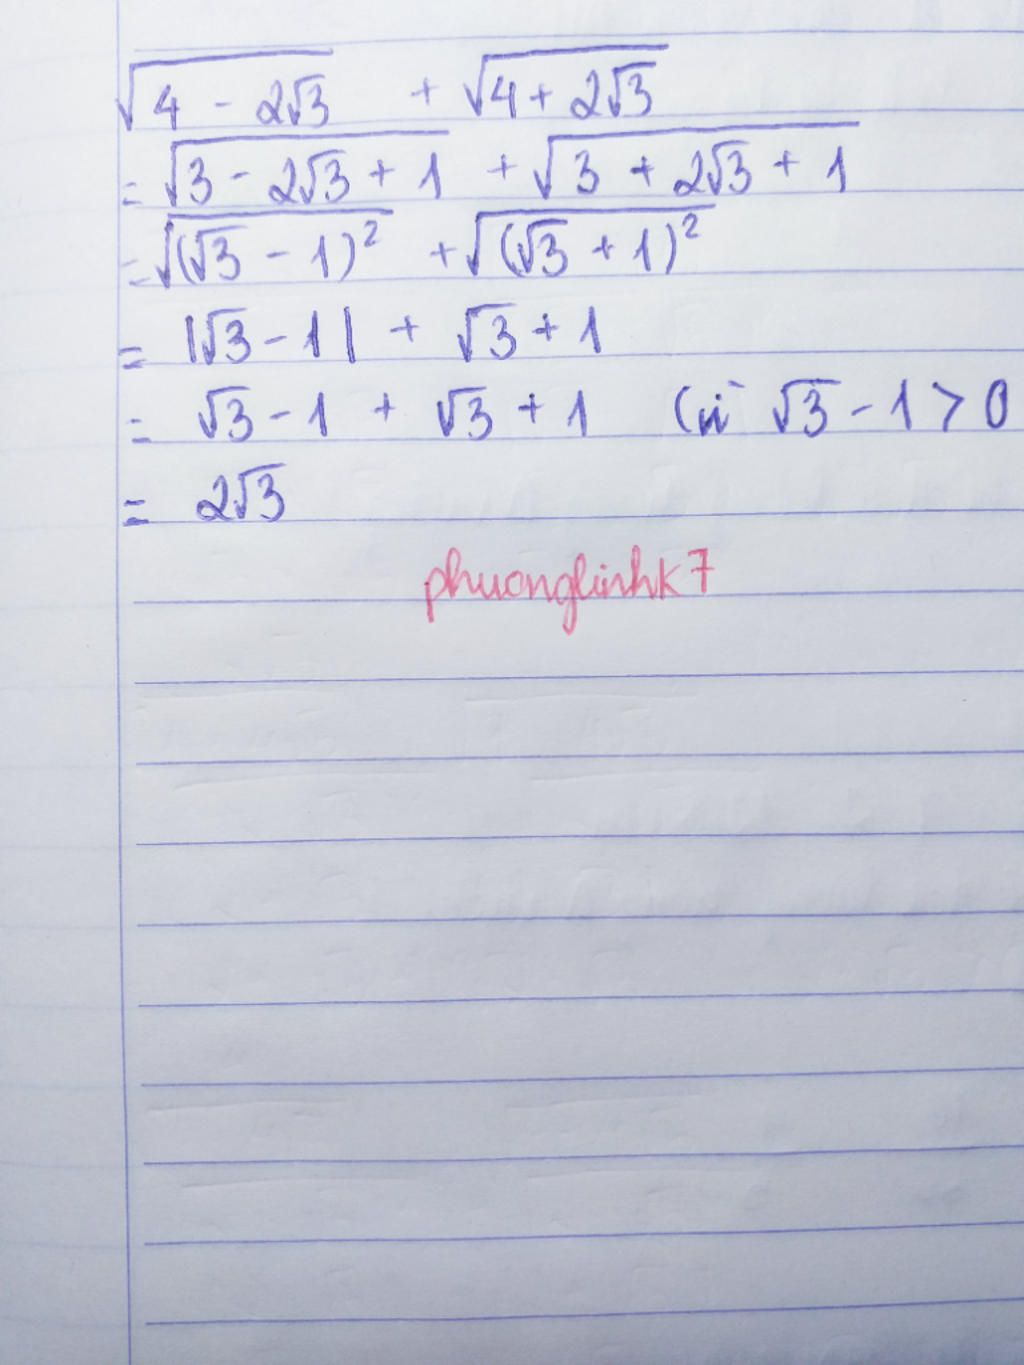 √(4 - 2√3) + √(4 + 2√3)
= √(3 - 2√3 + 1) + √(3 + 2√3 + 1)
= √((√3 - 1)²) + √((√3 + 1)²)
= |√3 - 1| + √3 + 1
= √3 - 1 + √3 + 1 (vì √3 - 1 > 0
= 2√3
phuonglinhk7